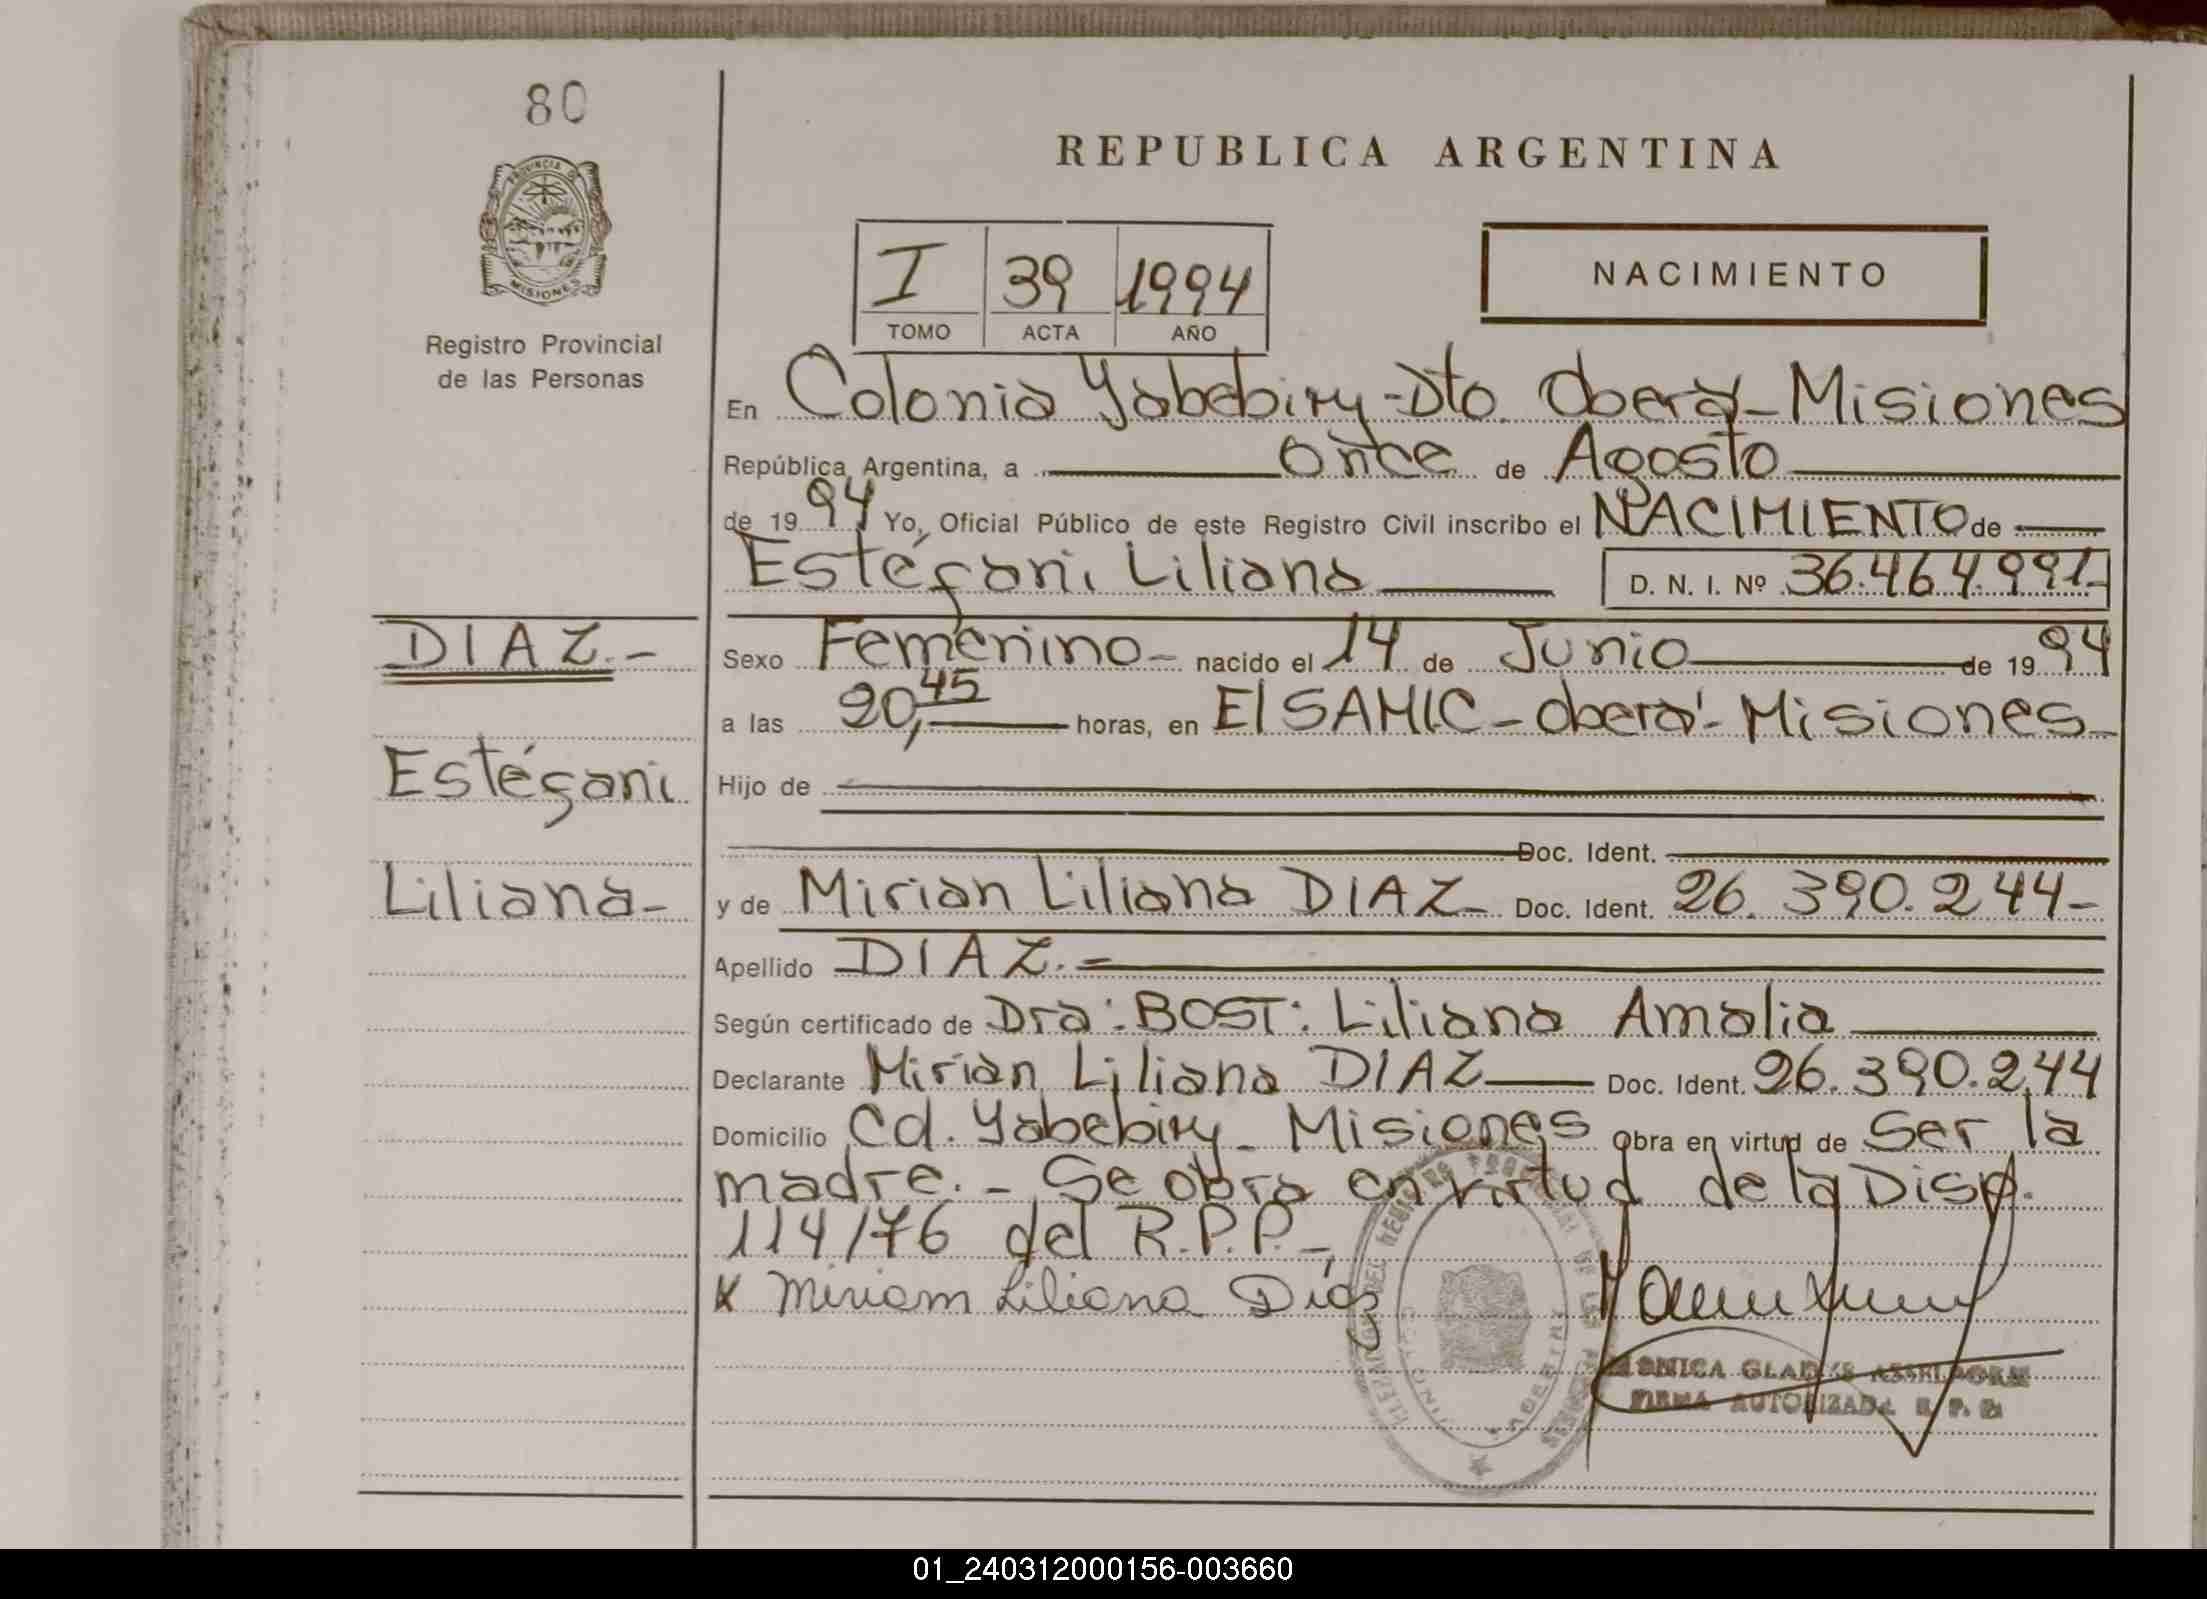 80
PROVINCIA DE
MISIONES
Registro Provincial
de las Personas
REPUBLICA ARGENTINA
I 39 1994
TOMO ACTA AÑO
NACIMIENTO
En Colonia Yabebiry-Dto. Oberá-Misiones
República Argentina, a once de Agosto
de 19 94 Yo, Oficial Público de este Registro Civil inscribo el NACIMIENTO de
Estéfani Liliana D. N. I. Nº 36.464.991-
DIAZ.-
Sexo Femenino- nacido el 14 de Junio de 19 94
a las 20,45 horas, en El SAMIC-Oberá-Misiones-
Estéfani
Hijo de
Doc. Ident.
Liliana-
y de Mirian Liliana DIAZ- Doc. Ident. 26.390.244-
Apellido DIAZ.=
Según certificado de Dra: BOST: Liliana Amalia
Declarante Mirian Liliana DIAZ Doc. Ident. 26.390.244
Domicilio Cd. Yabebiry- Misiones Obra en virtud de Ser la
madre.- Se obra en virtud de la Disp.
114/76 del R.P.P.-
x Miriam Liliana Díaz
MONICA GLADYS
FIRMA AUTORIZADA R. P. P.
01_240312000156-003660